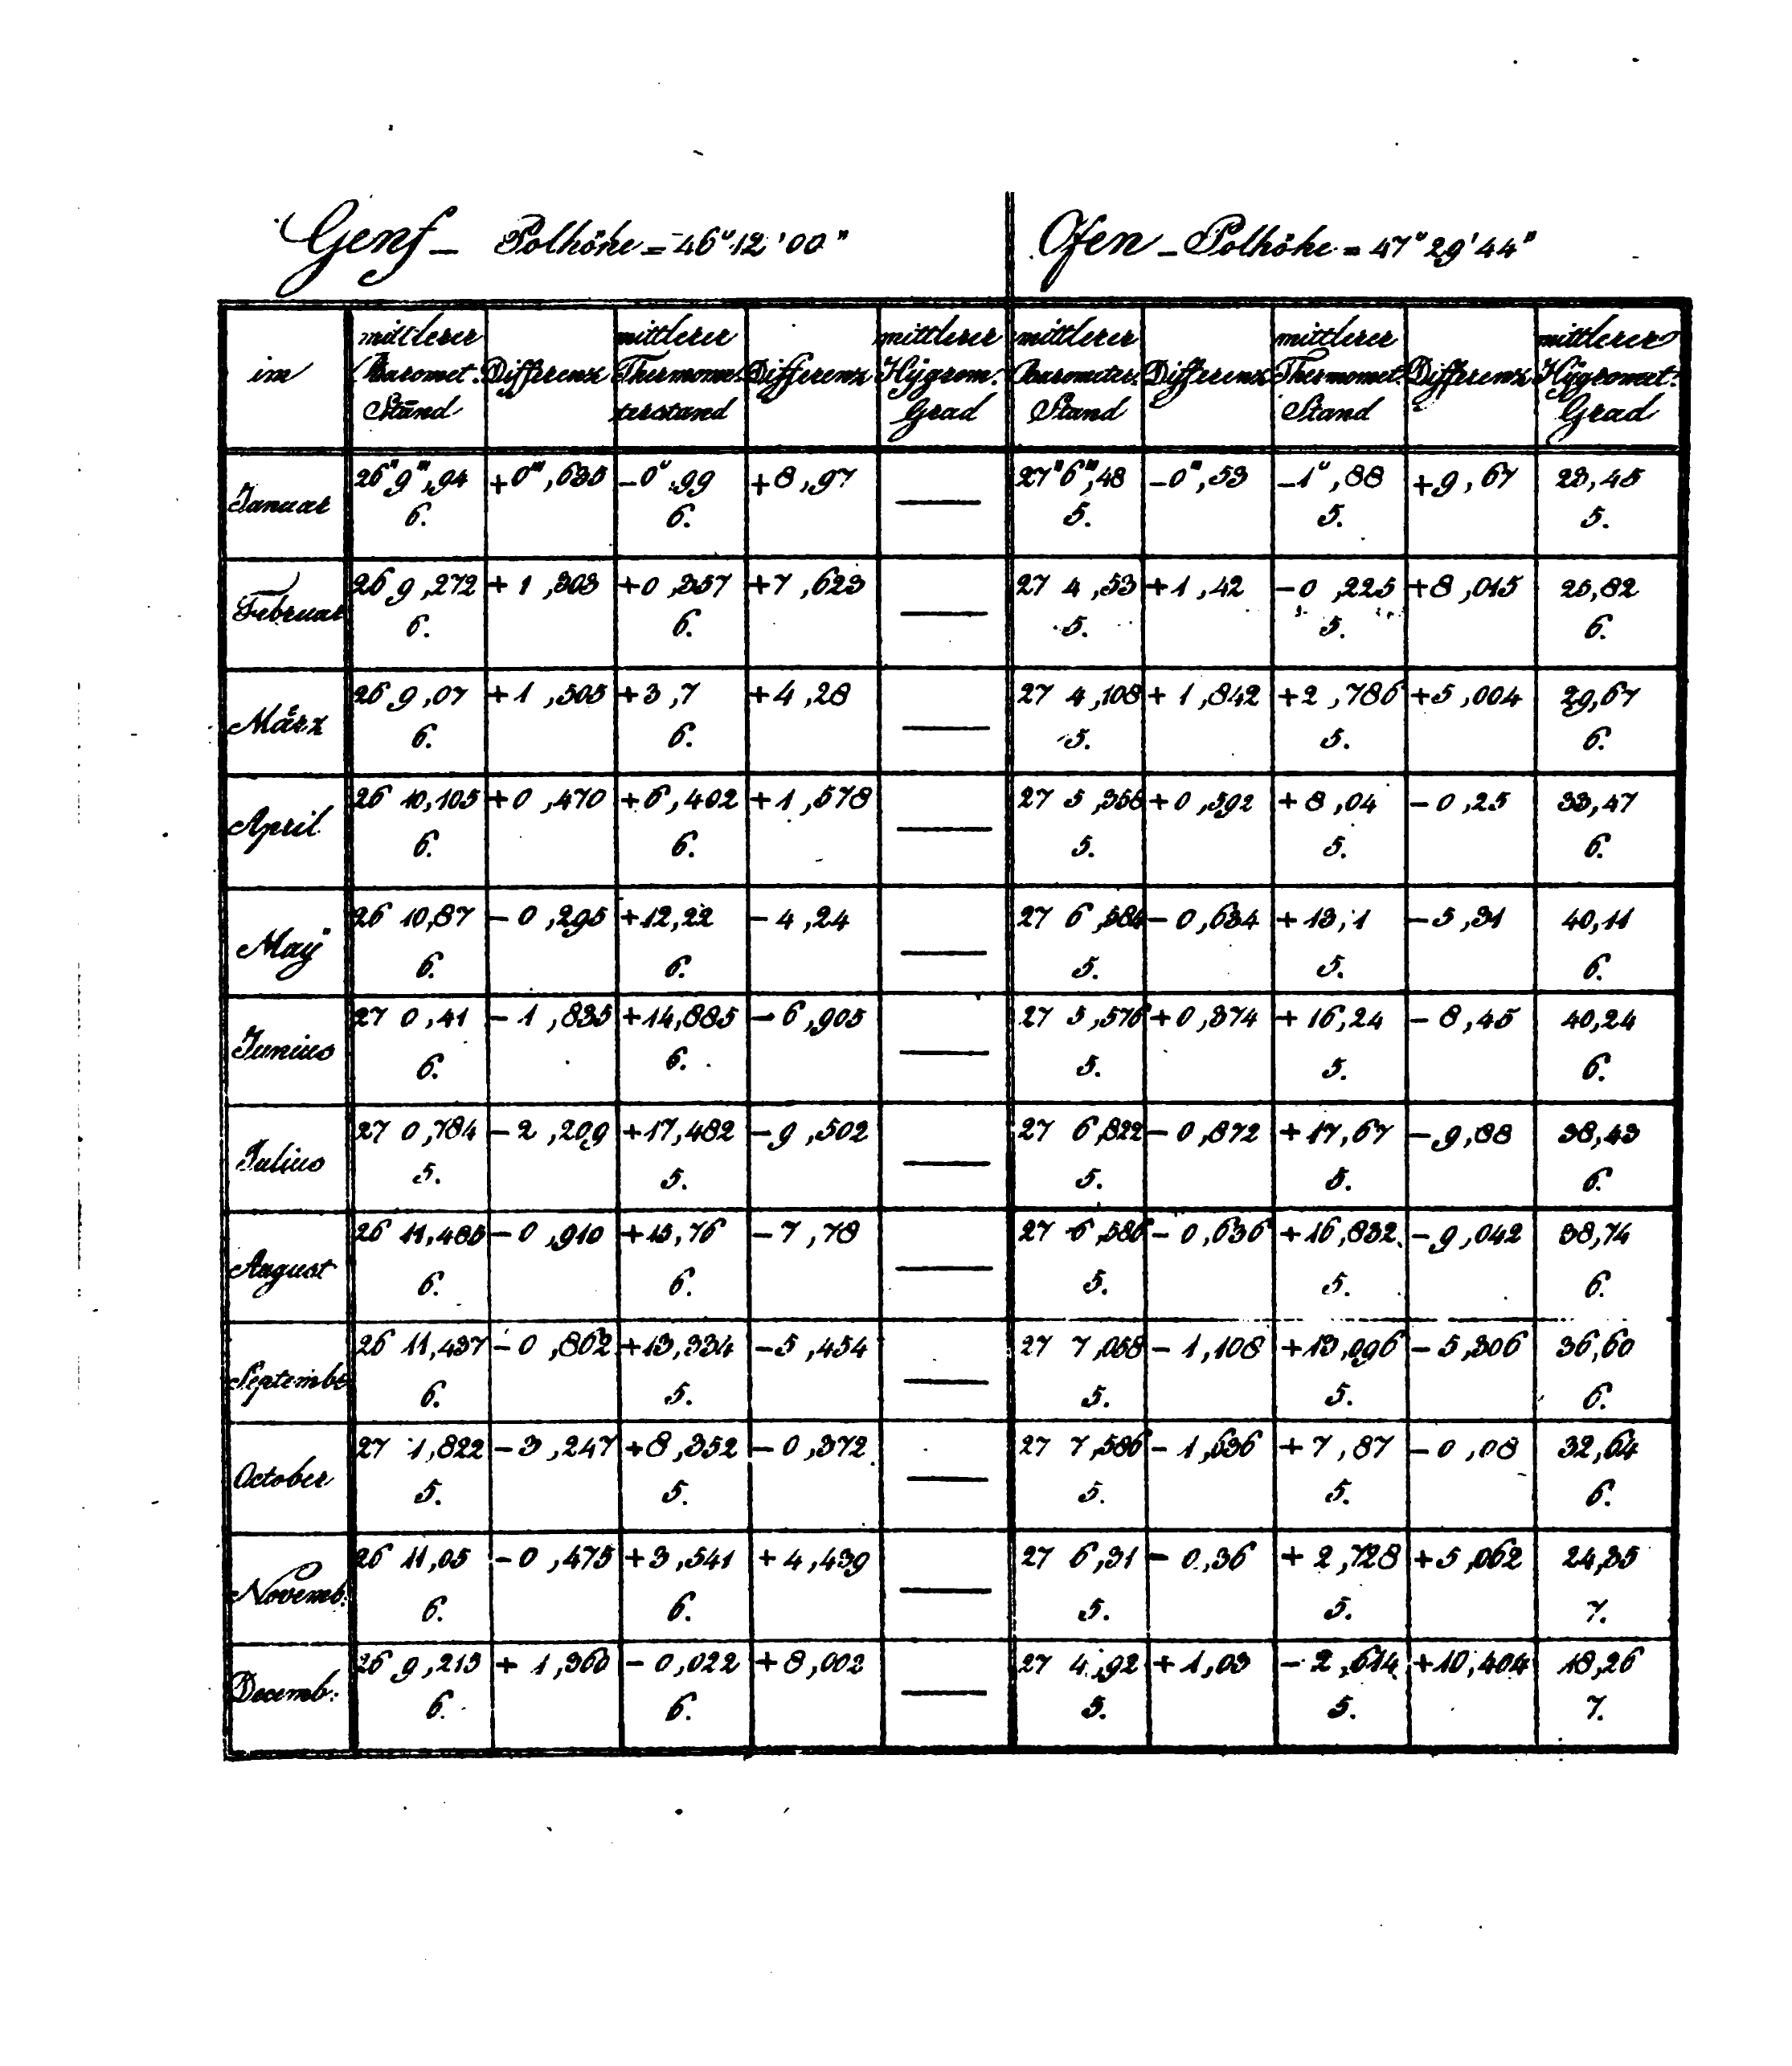 Genf – Polhöhe = 46° 12' 00" Ofen – Polhöhe = 47° 29' 44"
im mittlerer Baromet. Stand Differenz mittlerer Thermome-terstand Differenz mittlerer Hygrom. Grad mittlerer Barometer. Stand Differenz mittlerer Thermomet. Stand Differenz mittlerer Hygromet: Grad
Januar 26" 9"',94 +0"',635 –0°,99 +8,97 — 27" 6"',48 –0",53 –1°,88 +9,67 23,45
6. 6. 5. 5. 5.
Februar 26 9,272 +1,303 +0,357 +7,623 — 27 4,53 +1,42 –0,225 +8,015 25,82
6. 6. 5. 5. 6.
März 26 9,07 +1,505 +3,7 +4,28 — 27 4,108 +1,842 +2,786 +5,004 29,67
6. 6. 5. 5. 6.
April 26 10,105 +0,470 +6,402 +1,578 — 27 5,358 +0,592 +8,04 –0,25 33,47
6. 6. 5. 5. 6.
Maÿ 26 10,87 –0,295 +12,22 –4,24 — 27 6,584 –0,634 +13,1 –5,31 40,11
6. 6. 5. 5. 6.
Junius 27 0,41 –1,835 +14,885 –6,905 — 27 5,576 +0,374 +16,24 –8,45 40,24
6. 6. 5. 5. 6.
Julius 27 0,784 –2,209 +17,482 –9,502 — 27 6,822 –0,872 +17,67 –9,88 38,43
5. 5. 5. 5. 6.
August 26 11,485 –0,910 +15,76 –7,78 — 27 6,586 –0,636 +16,832 –9,042 38,74
6. 6. 5. 5. 6.
Septembr 26 11,437 –0,862 +13,334 –5,454 — 27 7,058 –1,108 +13,096 –5,306 36,60
6. 5. 5. 5. 6.
October 27 1,822 –3,247 +8,352 –0,372 — 27 7,586 –1,636 +7,87 –0,08 32,64
5. 5. 5. 5. 6.
Novemb. 26 11,05 –0,475 +3,541 +4,439 — 27 6,31 –0,36 +2,728 +5,062 24,35
6. 6. 5. 5. 7.
Decemb: 26 9,215 +1,360 –0,022 +8,002 — 27 4,92 +1,03 –2,614 +10,404 18,26
6. 6. 5. 5. 7.